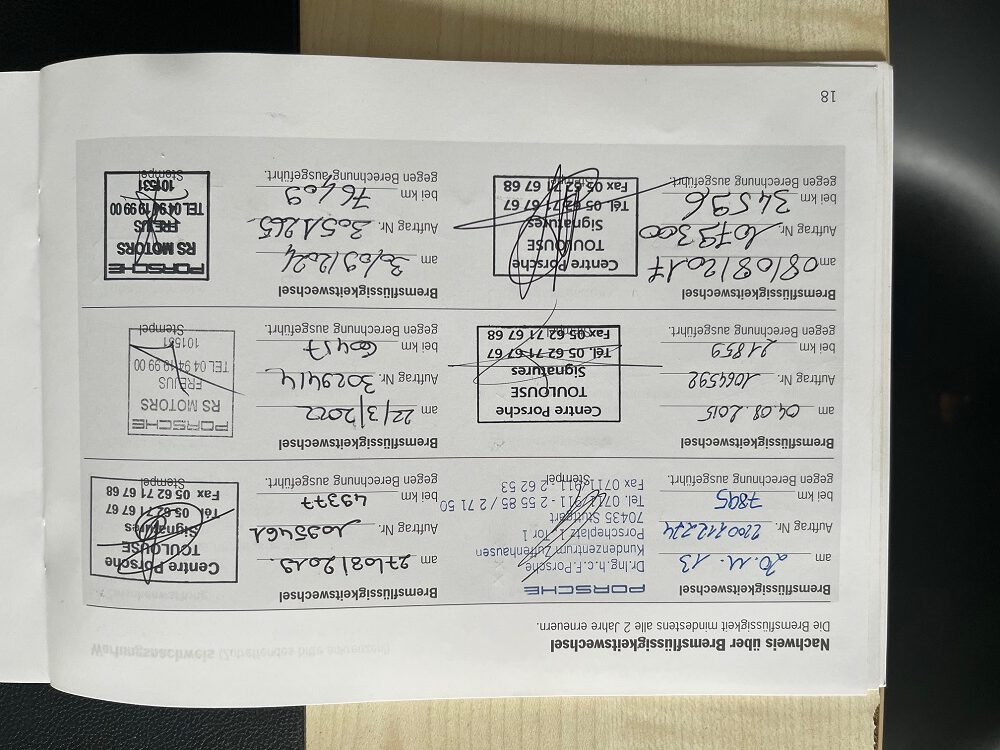 Nachweis über Bremsflüssigkeitswechsel
Die Bremsflüssigkeit mindestens alle 2 Jahre erneuern.
Bremsflüssigkeitswechsel
am 20.11.13
Auftrag Nr.
bei km 7895
gegen Berechnung ausgeführt.
PORSCHE
Dr.Ing.h.c.F.Porsche
Kundenzentrum Zuffenhausen
Porscheplatz 1, Tor 1
70435 Stuttgart
Tel. 0711/911 - 2 55 85 / 2 71 50
Fax 0711-911 - 2 62 53
Stempel
Bremsflüssigkeitswechsel
am 27/08/2019
Auftrag Nr. 1095461
bei km 49377
gegen Berechnung ausgeführt.
Centre Porsche
TOULOUSE
Signatures
Tél. 05 62 71 67 67
Fax 05 62 71 67 68
Bremsflüssigkeitswechsel
am 04.08.2015
Auftrag Nr. 1064592
bei km 21859
gegen Berechnung ausgeführt.
Centre Porsche
TOULOUSE
Signatures
Tél. 05 62 71 67 67
Fax 05 62 71 67 68
Bremsflüssigkeitswechsel
am 22/3/2022
Auftrag Nr. 3029414
bei km 60417
gegen Berechnung ausgeführt.
PORSCHE
RS MOTORS
FREJUS
TEL 04 94 19 99 00
101531
Stempel
Bremsflüssigkeitswechsel
am 08/08/2017
Auftrag Nr. 1079300
bei km 34596
gegen Berechnung ausgeführt.
Centre Porsche
TOULOUSE
Signatures
Tél. 05 62 71 67 67
Fax 05 62 71 67 68
Bremsflüssigkeitswechsel
am 30/09/2024
Auftrag Nr. 3051265
bei km 76409
gegen Berechnung ausgeführt.
PORSCHE
RS MOTORS
FREJUS
TEL 04 94 19 99 00
101531
Stempel
18